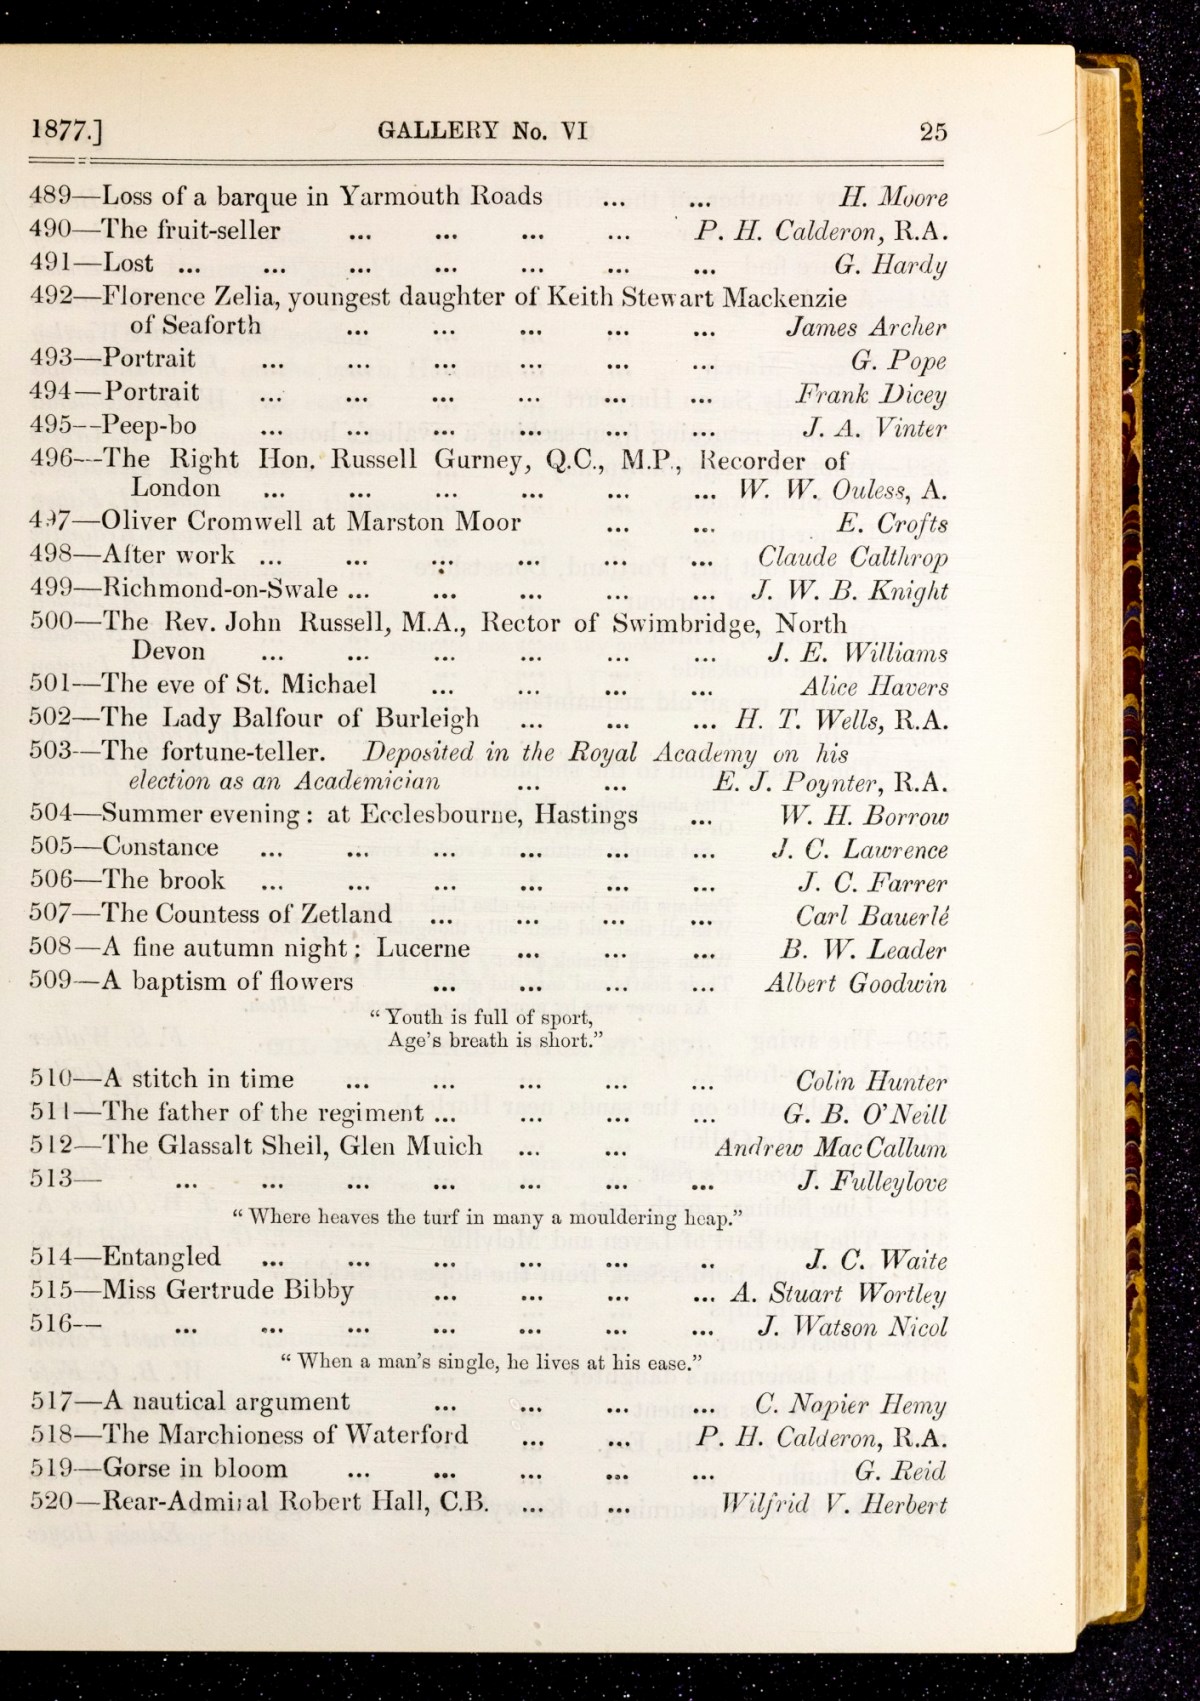 1877.] GALLERY No. VI 25
489—Loss of a barque in Yarmouth Roads ... ... H. Moore
490—The fruit-seller ... ... ... ... P. H. Calderon, R.A.
491—Lost ... ... ... ... ... ... ... G. Hardy
492—Florence Zelia, youngest daughter of Keith Stewart Mackenzie
of Seaforth ... ... ... ... ... James Archer
493—Portrait ... ... ... ... ... ... G. Pope
494—Portrait ... ... ... ... ... ... Frank Dicey
495—Peep-bo ... ... ... ... ... ... J. A. Vinter
496—The Right Hon. Russell Gurney, Q.C., M.P., Recorder of
London ... ... ... ... ... ... W. W. Ouless, A.
497—Oliver Cromwell at Marston Moor ... ... E. Crofts
498—After work ... ... ... ... ... ... Claude Calthrop
499—Richmond-on-Swale ... ... ... ... ... J. W. B. Knight
500—The Rev. John Russell, M.A., Rector of Swimbridge, North
Devon ... ... ... ... ... ... J. E. Williams
501—The eve of St. Michael ... ... ... ... Alice Havers
502—The Lady Balfour of Burleigh ... ... ... H. T. Wells, R.A.
503—The fortune-teller. Deposited in the Royal Academy on his
election as an Academician ... ... E. J. Poynter, R.A.
504—Summer evening: at Ecclesbourne, Hastings ... W. H. Borrow
505—Constance ... ... ... ... ... ... J. C. Lawrence
506—The brook ... ... ... ... ... ... J. C. Farrer
507—The Countess of Zetland ... ... ... ... Carl Bauerlé
508—A fine autumn night: Lucerne ... ... ... B. W. Leader
509—A baptism of flowers ... ... ... ... Albert Goodwin
“Youth is full of sport,
Age's breath is short.”
510—A stitch in time ... ... ... ... ... Colin Hunter
511—The father of the regiment ... ... ... ... G. B. O'Neill
512—The Glassalt Sheil, Glen Muich ... ... Andrew MacCallum
513— ... ... ... ... ... ... ... J. Fulleylove
“Where heaves the turf in many a mouldering heap.”
514—Entangled ... ... ... ... ... .. J. C. Waite
515—Miss Gertrude Bibby ... ... ... ... A. Stuart Wortley
516— ... ... ... ... ... ... ... J. Watson Nicol
“When a man's single, he lives at his ease.”
517—A nautical argument ... ... ... ... C. Napier Hemy
518—The Marchioness of Waterford ... ... P. H. Calderon, R.A.
519—Gorse in bloom ... ... ... ... ... G. Reid
520—Rear-Admiral Robert Hall, C.B. ... ... Wilfrid V. Herbert